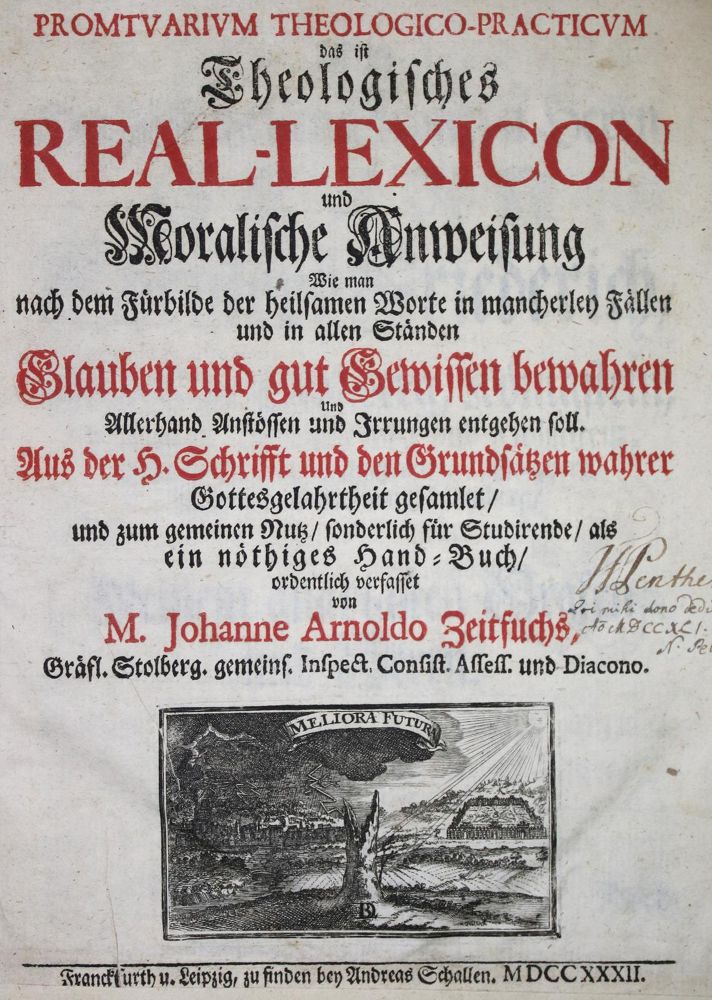 PROMTVARIVM THEOLOGICO-PRACTICVM
das ist
Theologisches
REAL-LEXICON
und
Moralische Anweisung
Wie man
nach dem Fürbilde der heilsamen Worte in mancherley Fällen
und in allen Ständen
Glauben und gut Gewissen bewahren
Und
Allerhand Anstössen und Irrungen entgehen soll.
Aus der H. Schrifft und den Grundsätzen wahrer
Gottesgelahrtheit gesamlet/
und zum gemeinen Nutz/ sonderlich für Studirende/ als
ein nöthiges Hand-Buch/
ordentlich verfasset
von
M. Johanne Arnoldo Zeitfuchs,
Gräfl. Stolberg. gemeins. Inspect. Consist. Assess. und Diacono.
mihi dono
MDCCXLI.
MELIORA FUTURA
Franckfurth u. Leipzig, zu finden bey Andreas Schallen. MDCCXXXII.